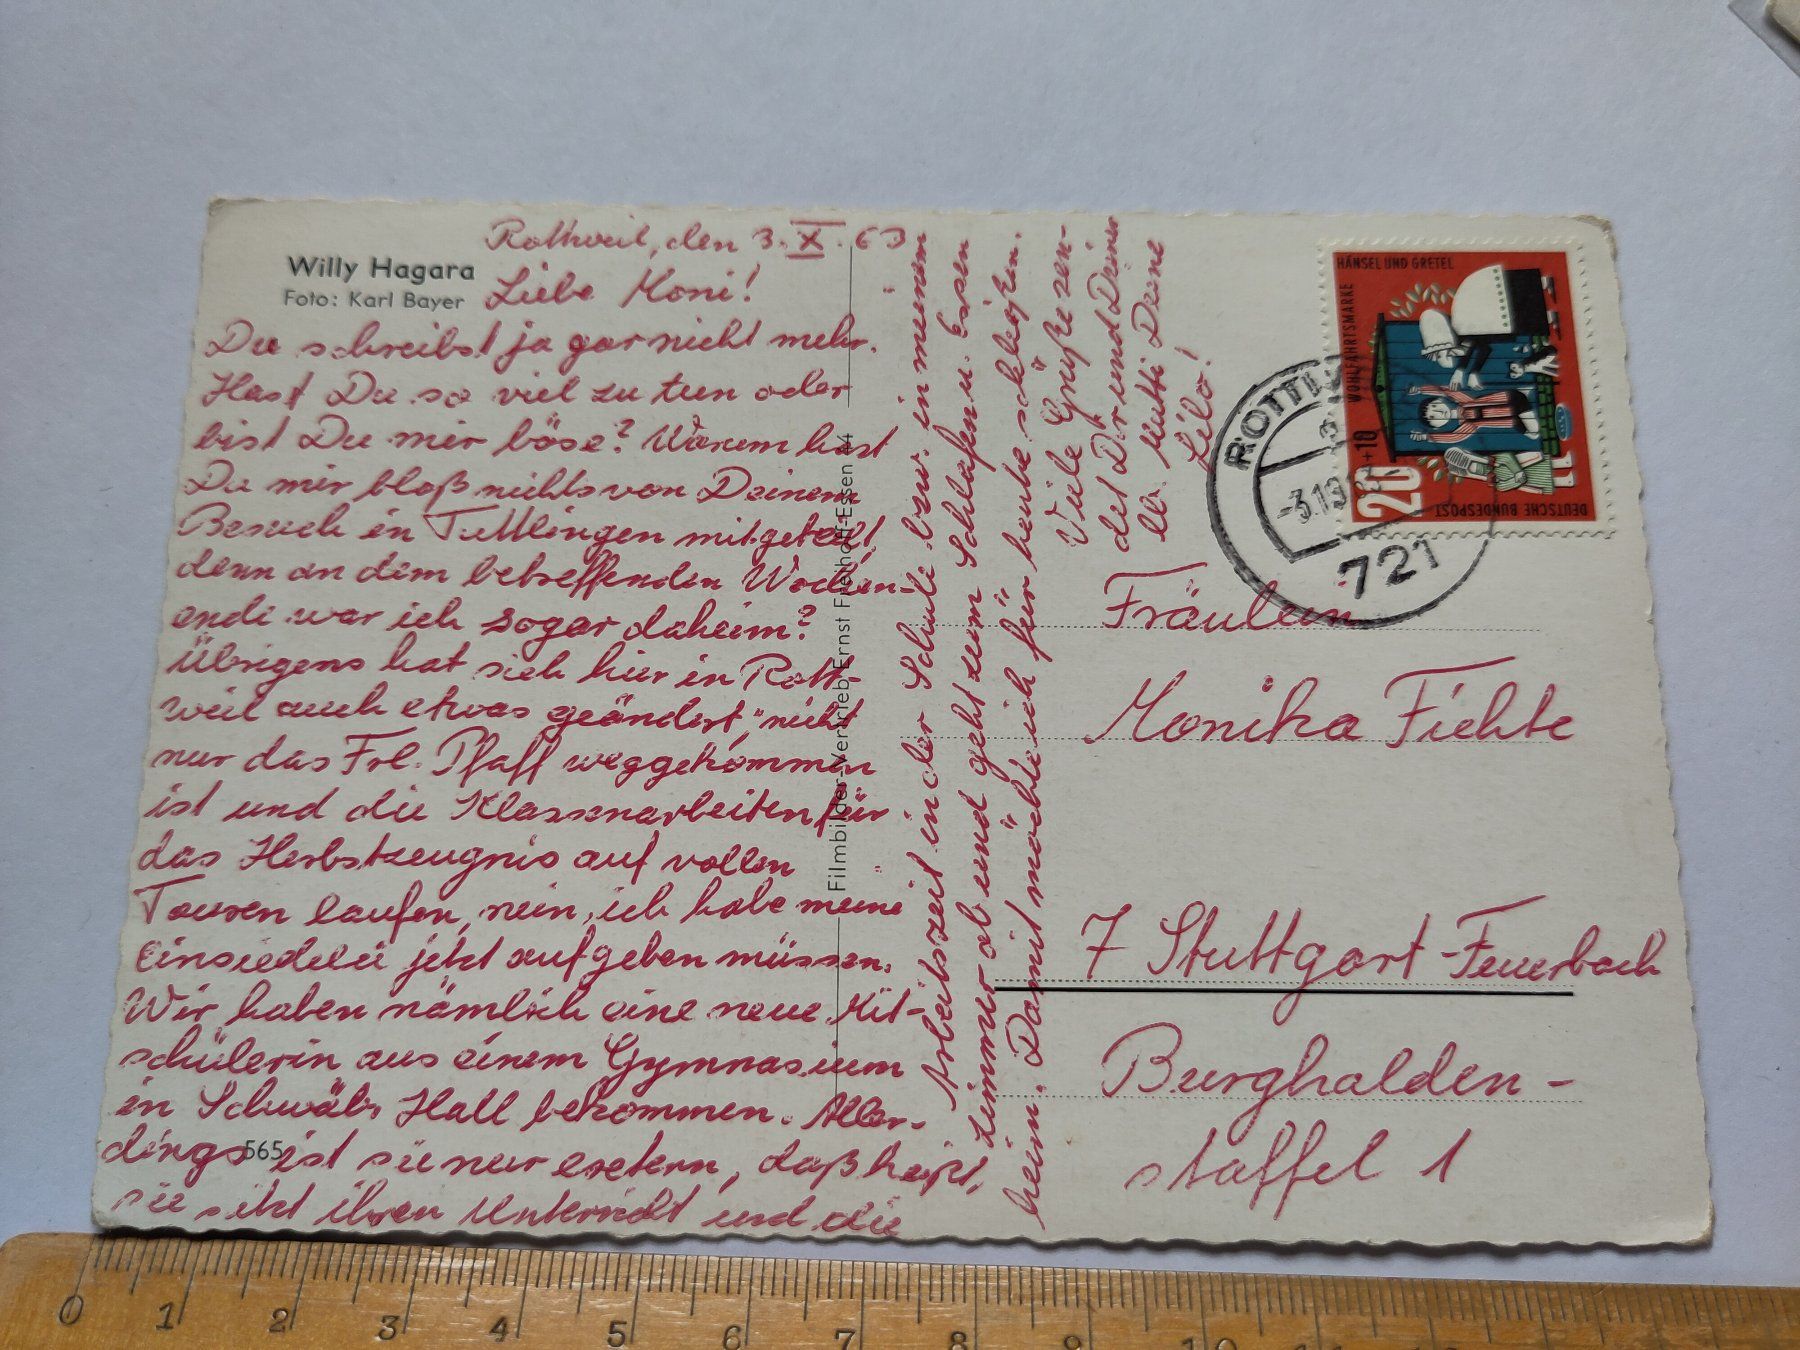 Rottweil, den 3. X. 63
Willy Hagara
Foto: Karl Bayer
Liebe Moni!
Du schreibst ja gar nicht mehr.
Hast Du so viel zu tun oder
bist Du mir böse? Warum hast
Du mir bloß nichts von Deinem
Besuch in Tuttlingen mitgeteilt,
denn an dem betreffenden Wochen-
ende war ich sogar daheim?
Übrigens hat sich hier in Rott-
weil auch etwas geändert, nicht
nur das Frl. Pfaff weggekommen
ist und die Klassenarbeiten für
das Herbstzeugnis auf vollen
Touren laufen, nein, ich habe meine
Einsiedelei jetzt aufgeben müssen.
Wir haben nämlich eine neue Mit-
schülerin aus einem Gymnasium
in Schwäb. Hall bekommen. Aller-
dings ist sie nur extern, daß heißt,
sie sitzt ihren Unterricht und die
565
Filmbilder-Vertrieb Ernst Freihoff-Essen 14
Arbeitszeit in der Schule bzw. in meinem
Zimmer ab und geht zum Schlafen u. Essen
heim. Damit möchte ich für heute schließen.
Viele Grüße sen-
det Dir und Deiner
lb. Mutti Deine
Lilo!
HÄNSEL UND GRETEL
WOHLFAHRTSMARKE
20 +10
DEUTSCHE BUNDESPOST
-3.10
721
Fräulein
Monika Fichte
7 Stuttgart-Feuerbach
Burghalden-
staffel 1
0 1 2 3 4 5 6 7 8 9 10